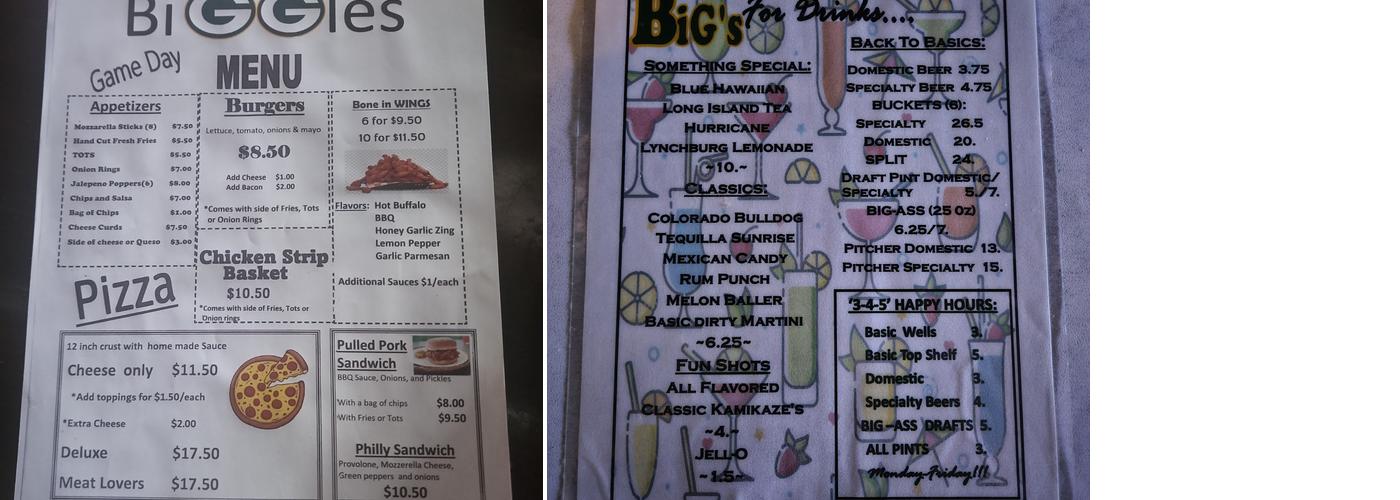 BiGGles
Game Day
MENU
Appetizers
Mozzarella Sticks (8) $7.50
Hand Cut Fresh Fries $5.50
TOTS $5.50
Onion Rings $7.00
Jalepeno Poppers(6) $8.00
Chips and Salsa $7.00
Bag of Chips $1.00
Cheese Curds $7.50
Side of cheese or Queso $3.00
Burgers
Lettuce, tomato, onions & mayo
$8.50
Add Cheese $1.00
Add Bacon $2.00
*Comes with side of Fries, Tots
or Onion Rings
Chicken Strip
Basket
$10.50
*Comes with side of Fries, Tots or
Onion rings
Bone in WINGS
6 for $9.50
10 for $11.50
Flavors: Hot Buffalo
BBQ
Honey Garlic Zing
Lemon Pepper
Garlic Parmesan
Additional Sauces $1/each
Pizza
12 inch crust with home made Sauce
Cheese only $11.50
*Add toppings for $1.50/each
*Extra Cheese $2.00
Deluxe $17.50
Meat Lovers $17.50
Pulled Pork
Sandwich
BBQ Sauce, Onions, and Pickles
With a bag of chips $8.00
With Fries or Tots $9.50
Philly Sandwich
Provolone, Mozzerella Cheese,
Green peppers and onions
$10.50
BiG's For Drinks....
Something Special:
Blue Hawaiian
Long Island Tea
Hurricane
Lynchburg Lemonade
~10.~
Classics:
Colorado Bulldog
Tequilla Sunrise
Mexican Candy
Rum Punch
Melon Baller
Basic dirty Martini
~6.25~
Fun Shots
All Flavored
Classic Kamikaze's
~4.~
Jell-O
~1.5~
Back To Basics:
Domestic Beer 3.75
Specialty Beer 4.75
Buckets (6):
Specialty 26.5
Domestic 20.
Split 24.
Draft Pint Domestic/
Specialty 5./7.
Big-Ass (25 oz)
6.25/7.
Pitcher Domestic 13.
Pitcher Specialty 15.
'3-4-5' HAPPY HOURS:
Basic Wells 3.
Basic Top Shelf 5.
Domestic 3.
Specialty Beers 4.
BIG-ASS DRAFTS 5.
ALL PINTS 3.
Monday-Friday!!!